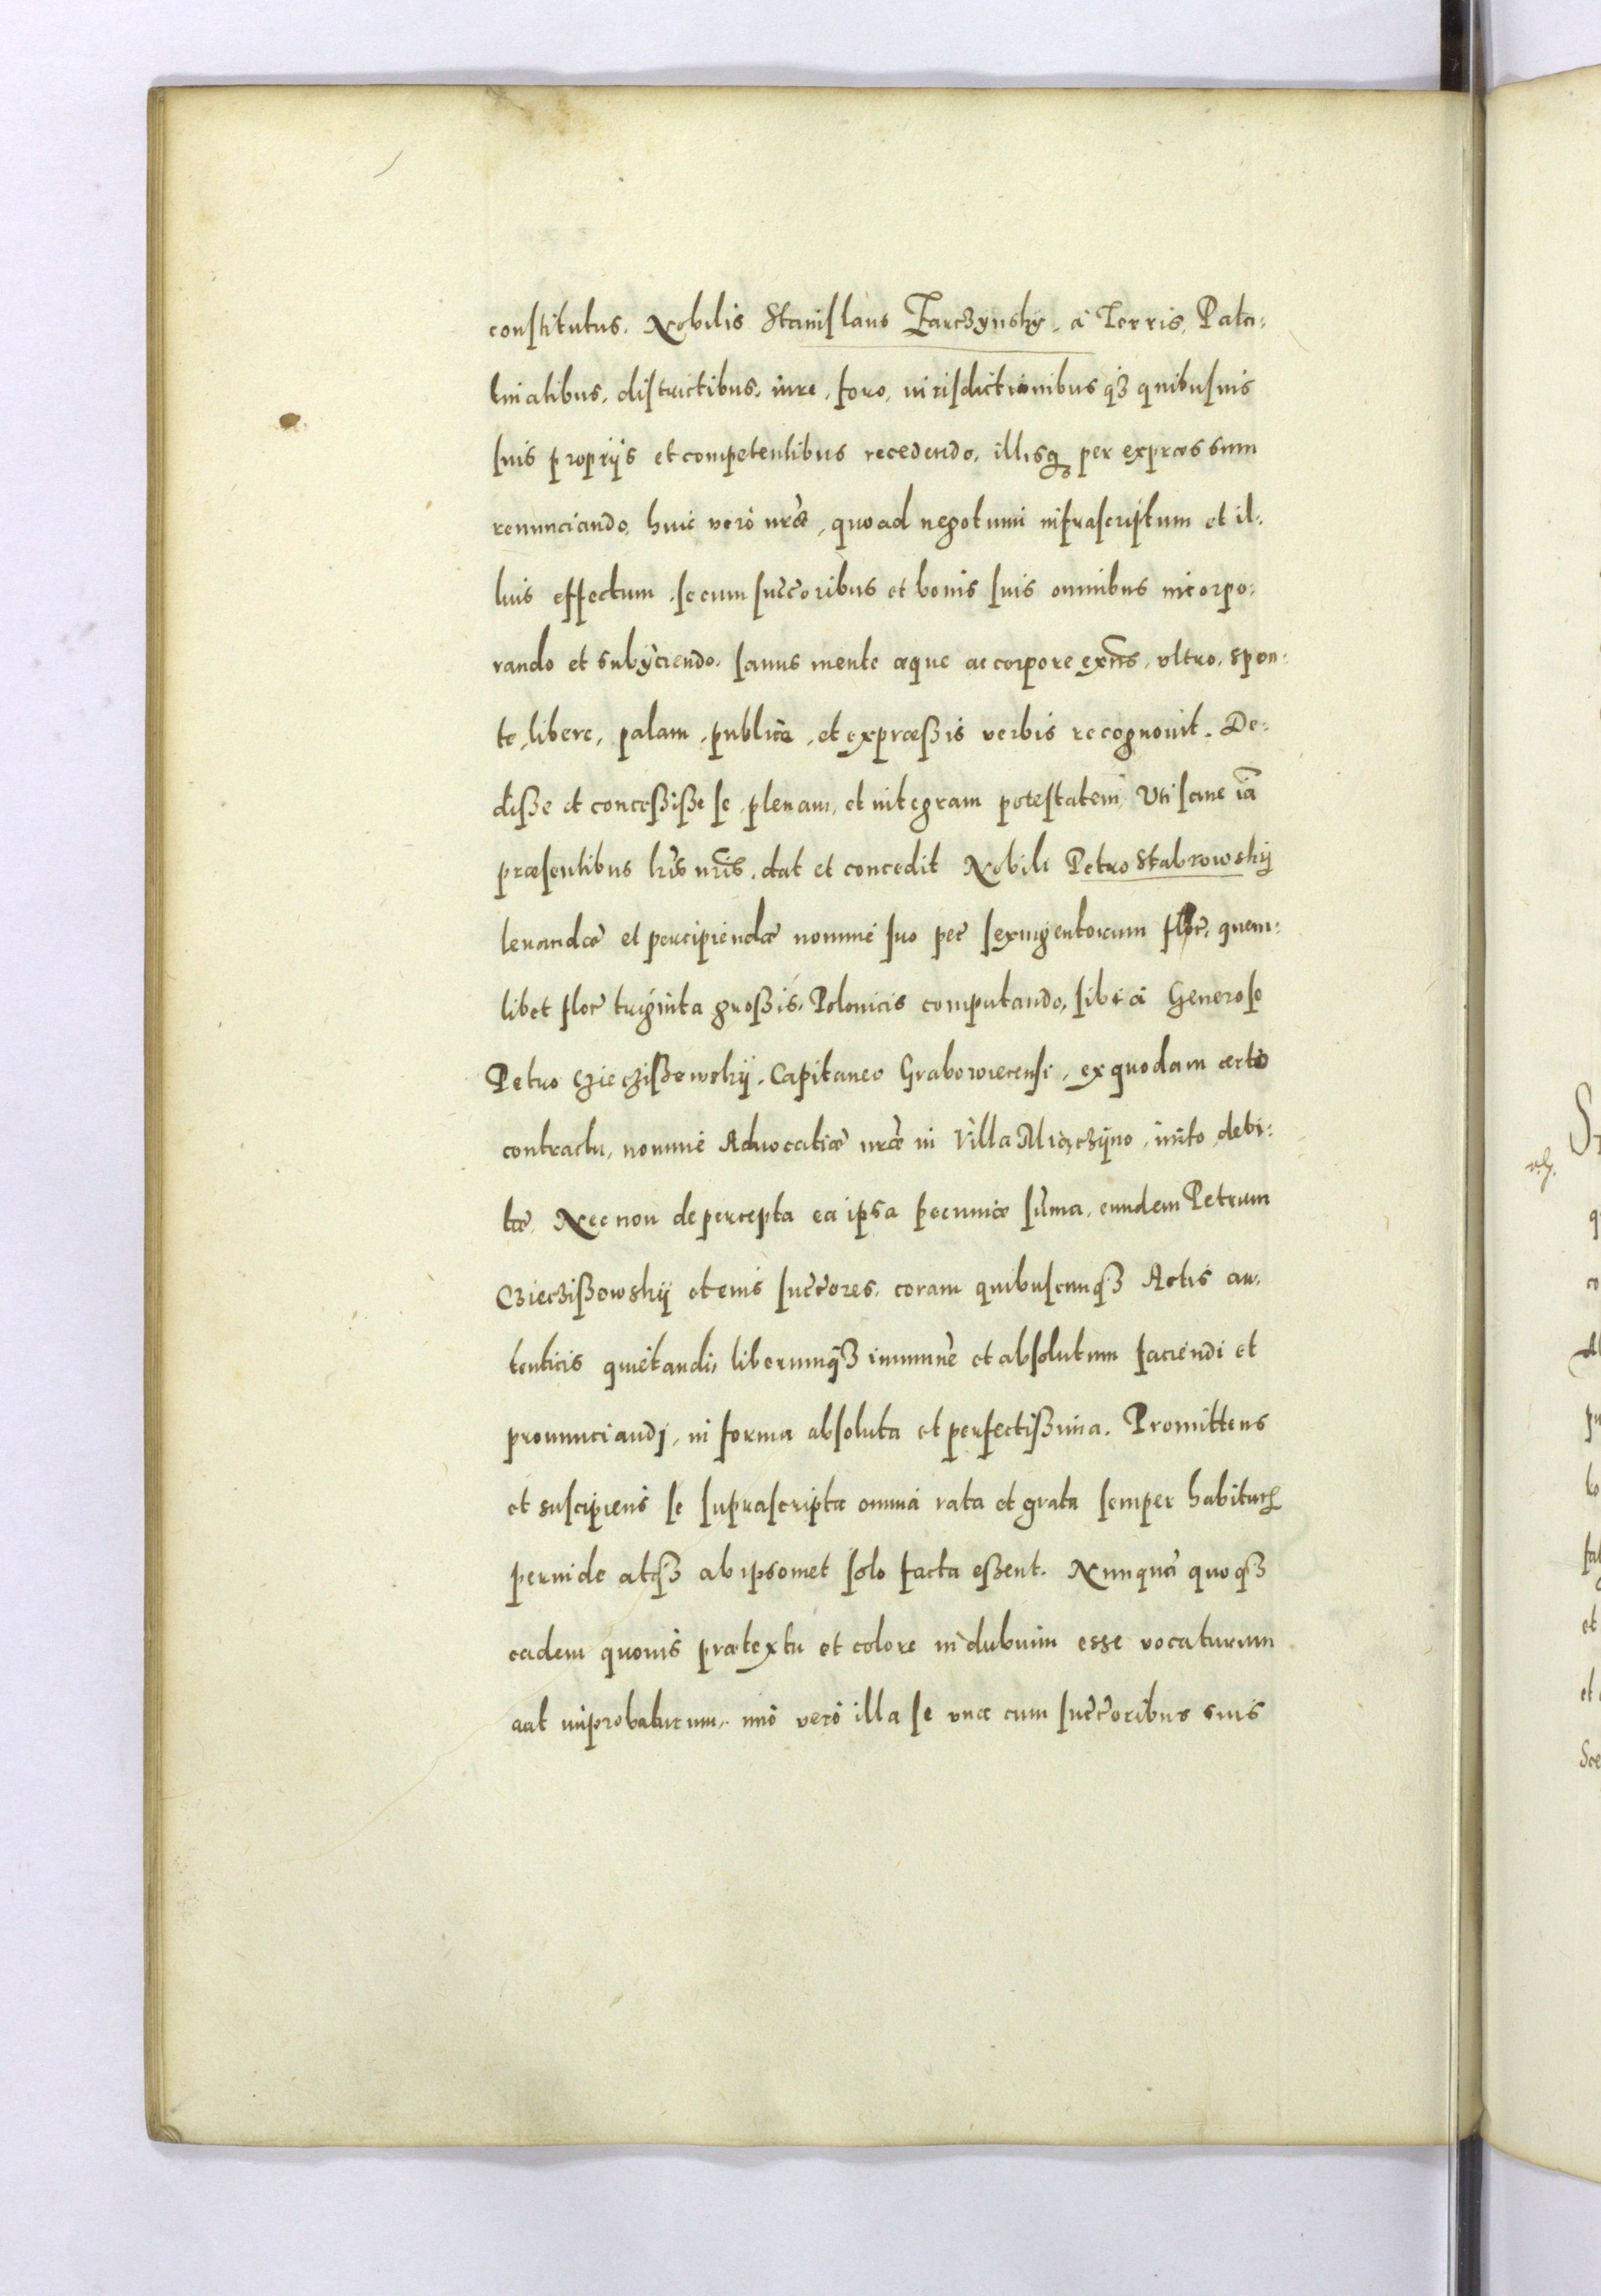 constitutus. Nobilis Stanislaus Tarczynskÿ, à Terris, Pala-
tinatibus, districtibus, iure, foro, iurisdictionibusq3 quibusuis
suis proprijs et competentibus recedendo, illisq3 per expræssum
renunciando, huic verò nr̃æ, quoad negotium infrascriptum et il-
lius effectum, se cum succ̃oribus et bonis suis omnibus incorpo-
rando et subÿciendo, sanus mente æque ac corpore exñs, ultro, spon-
te, libere, palam, publicè, et expræßis verbis recognouit. De-
diße et conceßiße se plenam, et integram potestatem, Uti sane iã
præsentibus lr̃is nr̃is, dat et concedit Nobili Petro Stabrowskÿ
leuandæ et percipiendæ nomine suo pec̃ sexingentorum flor̃. quem-
libet flor̃ triginta großis, Polonicis computando, sibi à Generoso
Petro Czieczißowskÿ, Capitaneo Grabowiecensi, ex quodam certo
contractu, nomine Aduocatiæ nr̃æ in Villa Miączÿno, inito, debi-
tæ, Nec non de percepta ea ipsa pecuniæ sum̃a, eundem Petrum
Czieczißowskÿ et eius succ̃ores, coram quibuscunq3 Actis au-
tenticis quietandi, liberumq3 immunẽ et absolutum faciendi et
pronunciandj, in forma absoluta et perfectißima. Promittens
et suscipiens se suprascripta omnia rata et grata semper habitur̃
perinde atq3 ab ipsomet solo facta eßent. Nunquã quoq3
eadem quouis prætextu et colore in dubium esse vocaturum
aut improbaturum, imò verò illa se una cum succ̃oribus suis